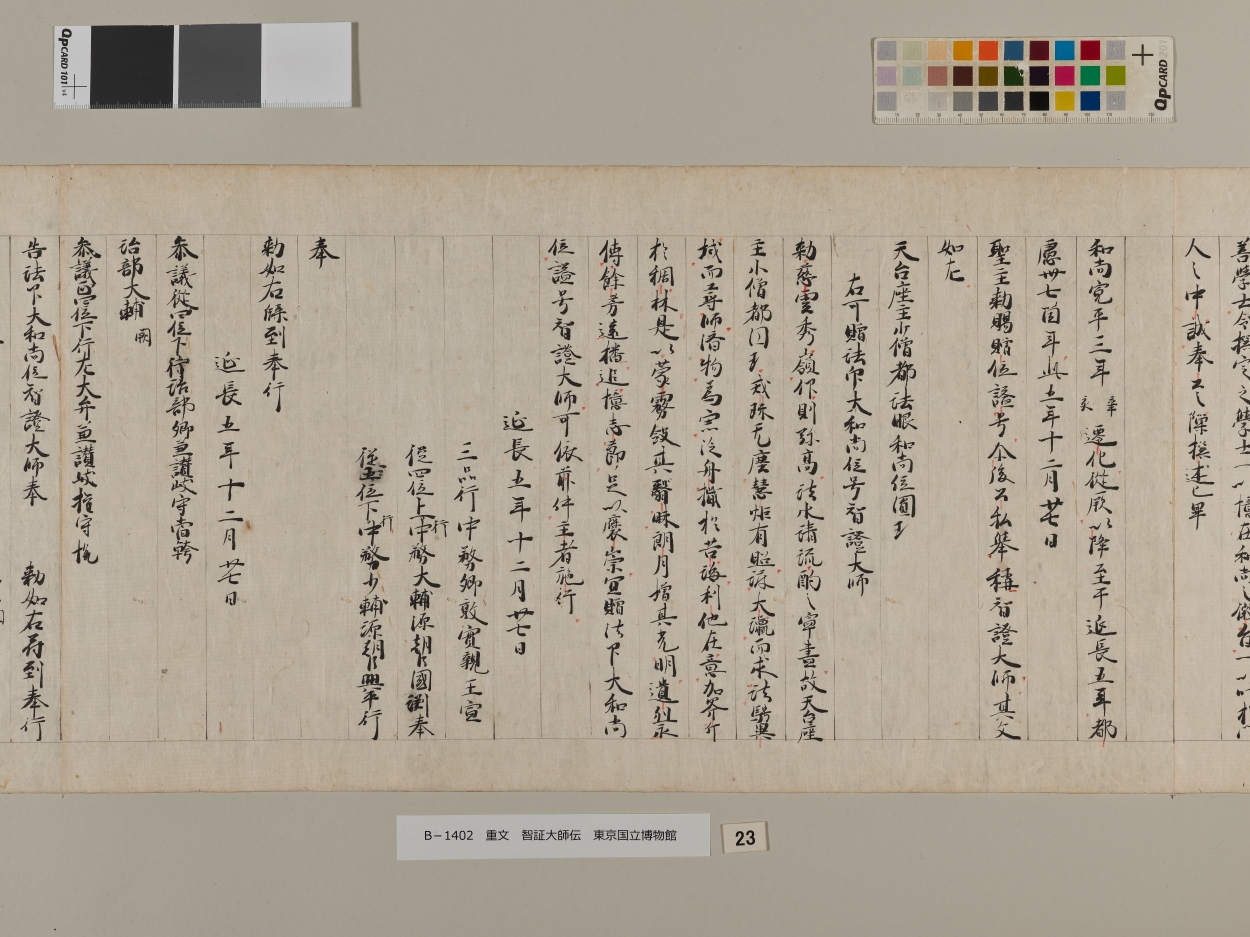 善學士令撰定之學士
人之中誠奉
和尚寛平三年辛亥遷化従厥以降至于延長五年都
慮卅七箇年此五年十二月廿七日
聖主勅賜贈位謚号令後公私舉稱智證大師其文
如左
天台座主少僧都法眼和尚位圓珎
右可贈法印大和尚位号智證大師
勅慈雲秀嶺仰則弥高法水清流酌之寧盡故天台座
主小僧都圓珎戒珠无塵慧炬有照訪大瀛而求法騎異
域而尋師濟物為宗泛舟檝於苦海利他在意加斧斤
於稠林是以蒙霧斂其翳昧朗月増其光明遺烈永
傳餘芳遠播追憶志節足以褒崇宜贈法印大和尚
位謚号智證大師可依前件主者施行
延長五年十二月廿七日
三品行中務卿敦實親王宣
従四位上行中務大輔源朝臣國淵奉
従五位下行中務少輔源朝臣興平行
奉
勅如右牒到奉行
延長五年十二月廿七日
参議従四位下守治部卿兼讃岐守當幹
治部大輔 國
参議正四位下行左大弁兼讃岐権守悦
告法印大和尚位智證大師奉 勅如右苻到奉行
QPCARD 101 v4
QPCARD 201
B－1402 重文 智証大師伝 東京国立博物館
23